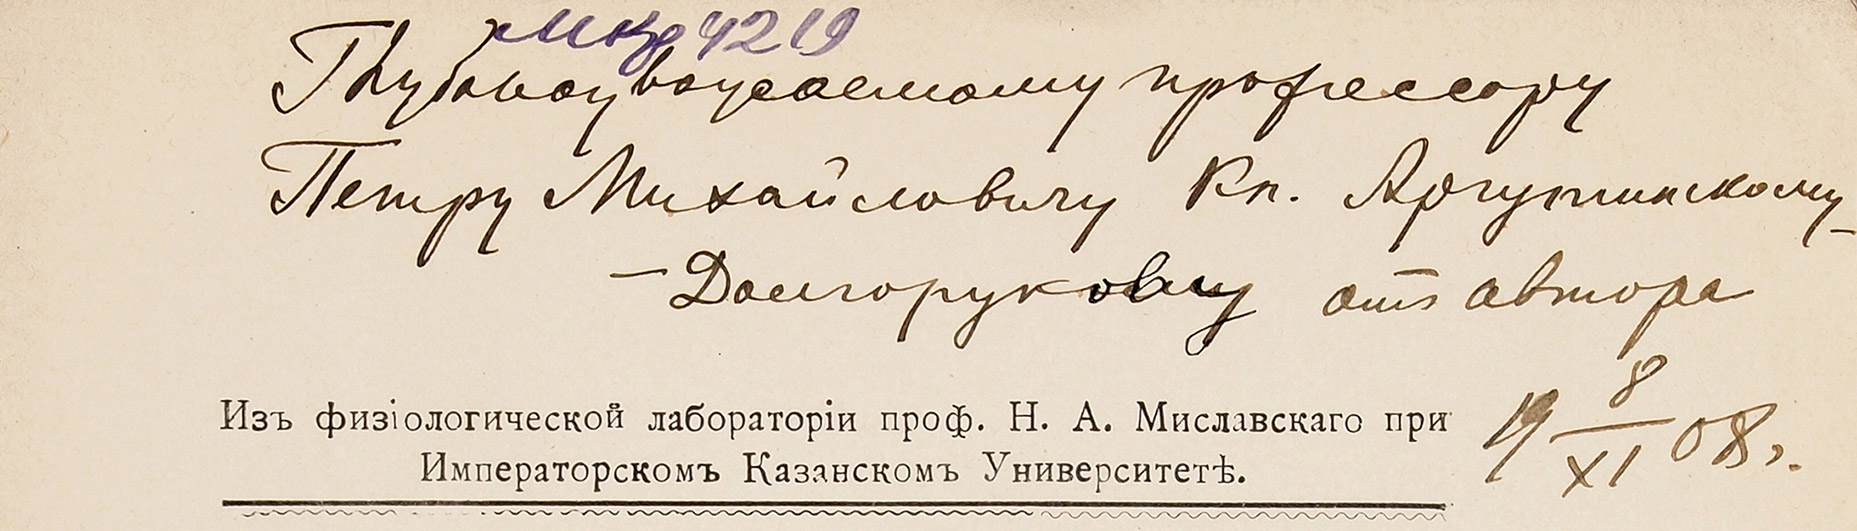 Мкр 4219
Глубокоуважаемому профессору
Петру Михайловичу Кн. Аргутинскому-
-Долгорукову отъ автора
Изъ физіологической лабораторіи проф. Н. А. Миславскаго при
Императорскомъ Казанскомъ Университетѣ.
19 8/XI 08 г.